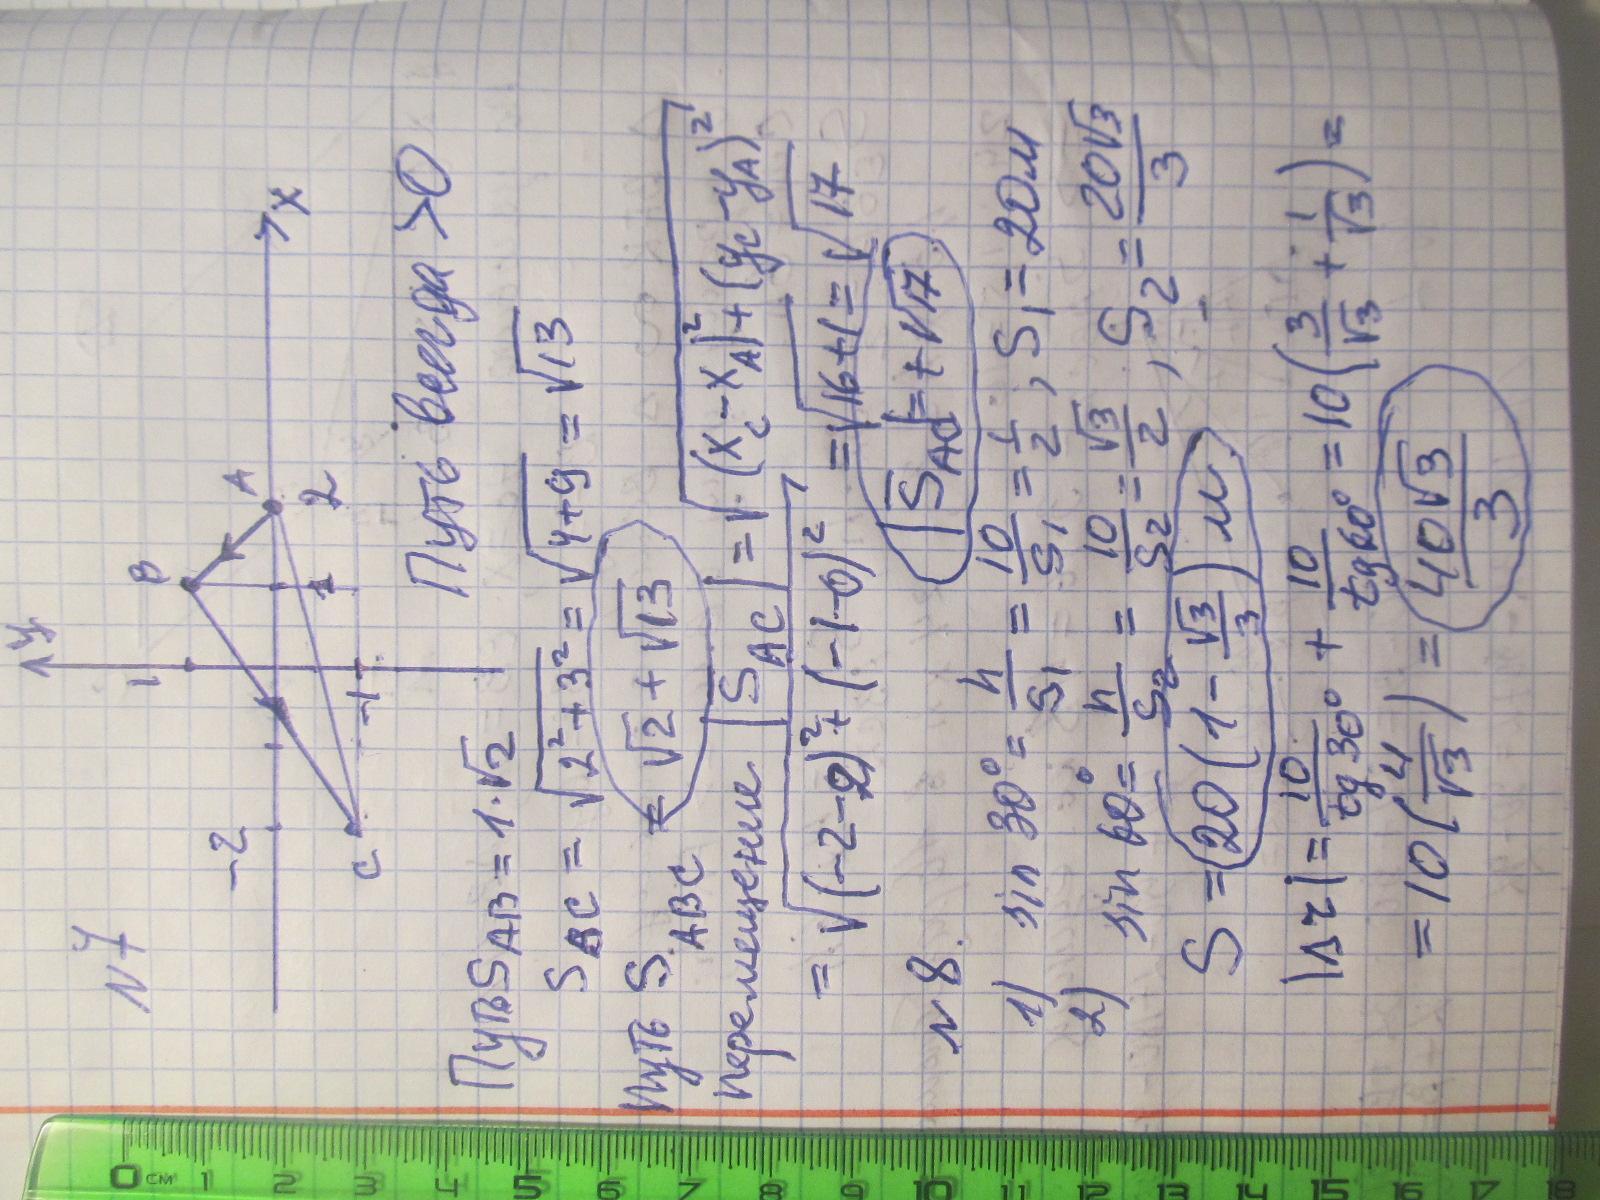 N7
y
B
1
A
X
-2
1
2
-1
C
Путь всегда >0
Путь S_AB = 1·√2
S_BC = √(2²+3²) = √(4+9) = √13
Путь S_ABC = √2 + √13
перемещение |S_AC| = √((x_C - x_A)² + (y_C - y_A)²)
= √((-2-2)² + (-1-0)²) = √(16+1) = √17
|S_AC| = +√17
N 8.
1) sin 30° = h/S₁ = 10/S₁ = 1/2, S₁ = 20м
2) sin 60° = h/S₂ = 10/S₂ = √3/2, S₂ = 20√3/3
S = 20(1 - √3/3) м
|Δr| = 10/tg30° + 10/tg60° = 10(3/√3 + 1/√3) =
= 10(4/√3) = 40√3/3
0 см 1 2 3 4 5 6 7 8 9 10 11 12 13 14 15 16 17 18